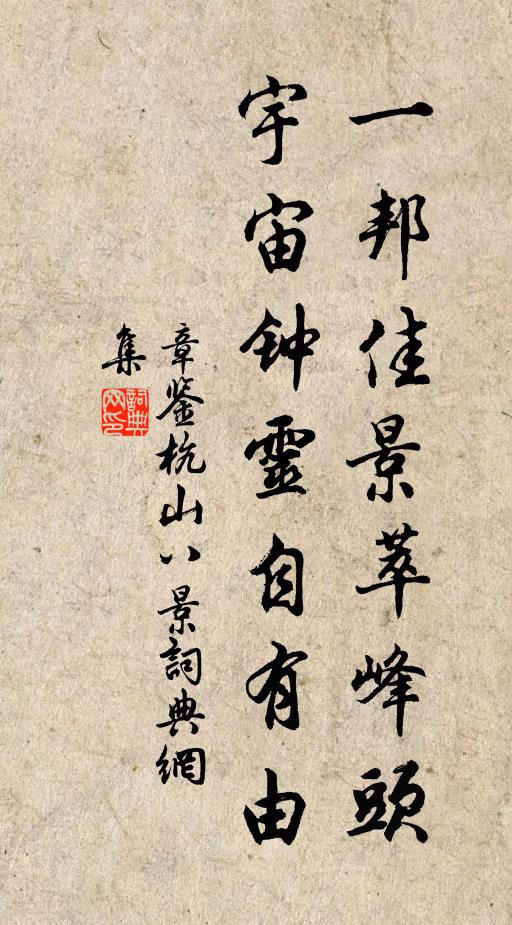 一邦佳景萃峰頭
宇宙钟靈自有由
章鉴杭山八景詞典網
集
詞典網印